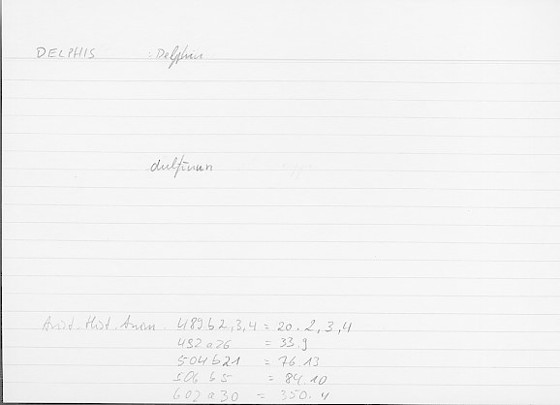 DELPHIS = Delphin
dulfīnun
Arist. Hist. Anim. 489 b 2,3,4 = 20. 2, 3, 4
492 a 26 = 33.9
504 b 21 = 76.13
506 b 5 = 84.10
602 a 30 = 350.4